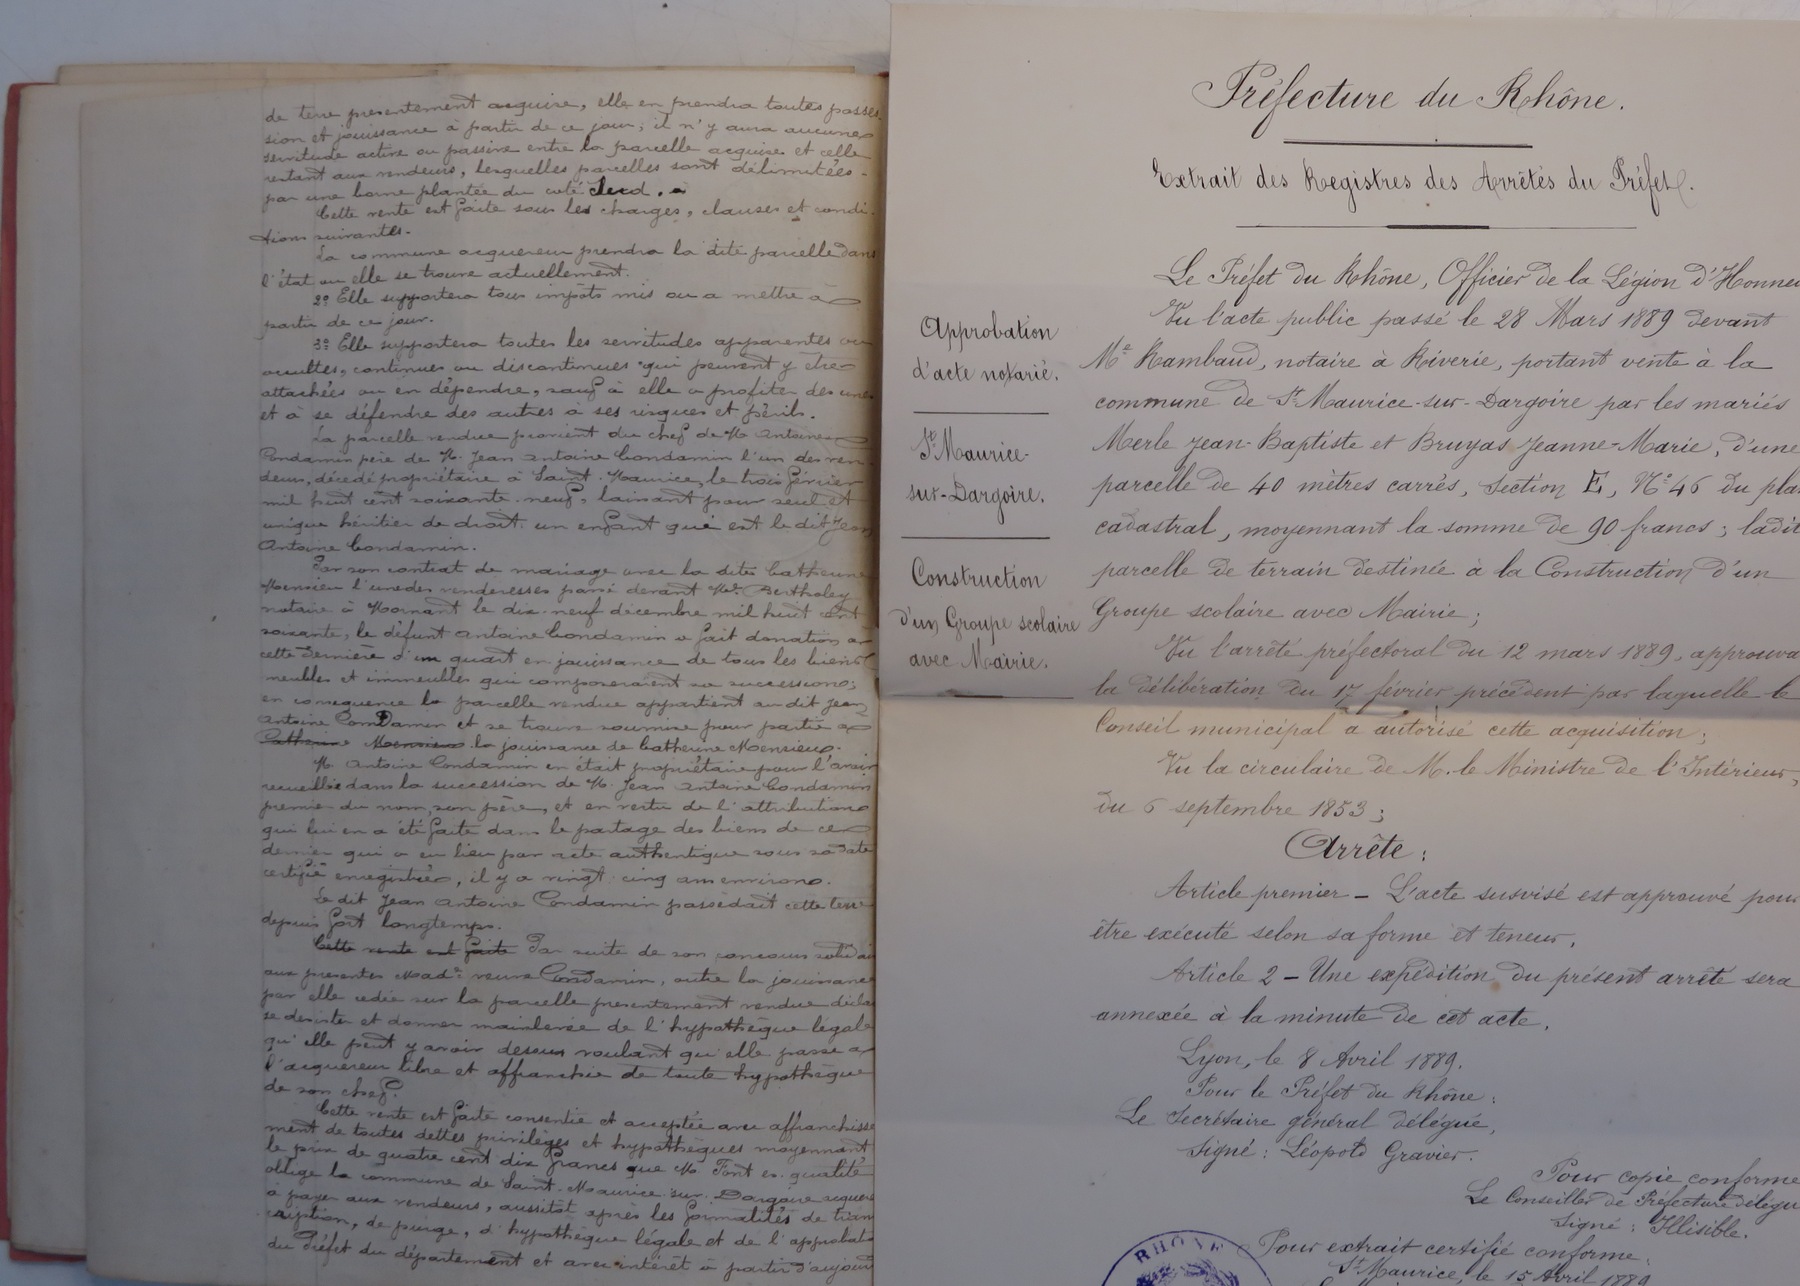 de terre presentement acquise, elle en prendra toutes posses-
sion et jouissance à partir de ce jour; il n'y aura aucune
servitude active ou passive entre la parcelle acquise et celle
restant aux vendeurs, lesquelles parcelles sont délimitées
par une borne plantée du coté Sud.
Cette vente est faite sous les charges, clauses et condi-
tions suivantes.
La commune acquereur prendra la dite parcelle dans
l'état ou elle se trouve actuellement.
2° Elle supportera tous impôts mis ou a mettre à
partir de ce jour.
3° Elle supportera toutes les servitudes apparentes ou
occultes, continues ou discontinues qui peuvent y être
attachées ou en dépendre, sauf à elle a profiter des unes
et à se défendre des autres à ses risques et périls.
La parcelle vendue provient du chef de M. Antoine
Condamin père de M. Jean Antoine Condamin l'un des ven-
deurs, décédé propriétaire à Saint-Maurice, le trois février
mil huit cent soixante-neuf, laissant pour seul et
unique héritier de droit: un enfant qui est le dit Jean
Antoine Condamin.
Par son contrat de mariage avec la dite Catherine
Monsieu l'une des venderesses passé devant Me Bertholey
notaire à Mornant le dix-neuf décembre mil huit cent
soixante, le défunt Antoine Condamin a fait donation à
cette dernière d'un quart en jouissance de tous les biens
meubles et immeubles qui composeraient sa succession;
en consequence la parcelle vendue appartient au dit Jean
Antoine Condamin et se trouve soumise pour partie à
Catherine Monsieu la jouissance de Catherine Monsieu.
M. Antoine Condamin en était propriétaire pour l'avoir
recueillie dans la succession de M. Jean Antoine Condamin
premier du nom, son père, et en vertu de l'attribution
qui lui en a été faite dans le partage des biens de ce
dernier qui a eu lieu par acte authentique sous sa date
certifié enregistrée, il y a vingt-cinq ans environ.
Le dit Jean Antoine Condamin possedait cette terre
depuis fort longtemps.
Cette vente est faite Par suite de son concours solidai
aux presentes Made veuve Condamin, outre la jouissance
par elle cedée sur la parcelle presentement vendue décla
se desister et donner mainlevée de l'hypothèque légale
qu'elle peut y avoir dessus voulant qu'elle passe à
l'acquereur libre et affranchie de toute hypothèque
de son chef.
Cette vente est faite consentie et acceptée avec affranchisse
ment de toutes dettes privilèges et hypothèques moyennant
le prix de quatre cent dix francs que M. Font es-qualité
oblige la commune de Saint-Maurice-sur-Dargoire acquere
à payer aux vendeurs, aussitôt après les formalités de trans
cription, de purge, d'hypothèque légale et de l'approbat
du Préfet du département et avec intérêt a partir d'aujourd
Préfecture du Rhône.
Extrait des Registres des Arrêtés du Préfet.
Approbation
d'acte notarié.
St Maurice-
sur-Dargoire.
Construction
d'un Groupe scolaire
avec Mairie.
Le Préfet du Rhône, Officier de la Légion d'Honneu
Vu l'acte public passé le 28 Mars 1889 devant
Me Rambaud, notaire à Riverie, portant vente à la
commune de St Maurice-sur-Dargoire par les mariés
Merle Jean-Baptiste et Bruyas Jeanne-Marie, d'une
parcelle de 40 mètres carrés, Section E, No 46 du plan
cadastral, moyennant la somme de 90 francs; ladit
parcelle de terrain destinée à la Construction d'un
Groupe scolaire avec Mairie;
Vu l'arrêté préfectoral du 12 mars 1889, approuva
la délibération du 17 février précédent par laquelle le
Conseil municipal a autorisé cette acquisition;
Vu la circulaire de M. le Ministre de l'Intérieur,
du 6 septembre 1853;
Arrête:
Article premier – L'acte susvisé est approuvé pour
être exécuté selon sa forme et teneur.
Article 2 – Une expédition du présent arrêté sera
annexée à la minute de cet acte.
Lyon, le 8 Avril 1889.
Pour le Préfet du Rhône:
Le Secrétaire général délégué,
Signé: Léopold Gravier.
Pour copie conforme
Le Conseiller de Préfecture délégu
Signé: Illisible.
Pour extrait certifié conforme:
St Maurice, le 15 Avril 1889
RHÔNE